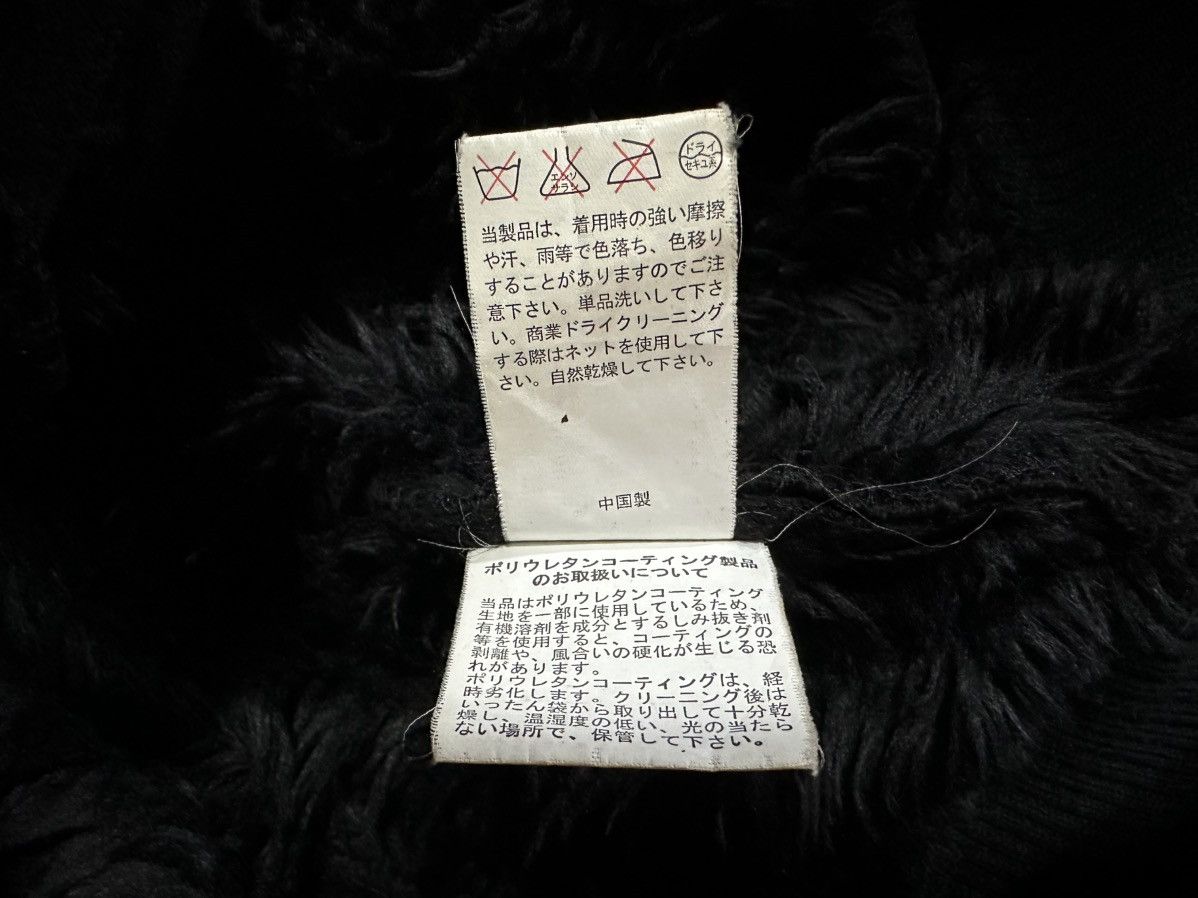 エンソ
サラシ
ドライ
セキユ系
当製品は、着用時の強い摩擦
や汗、雨等で色落ち、色移り
することがありますのでご注
意下さい。単品洗いして下さ
い。商業ドライクリーニング
する際はネットを使用して下
さい。自然乾燥して下さい。
中国製
ポリウレタンコーティング製品
のお取扱いについて
当品はポリウレタンコーティング
生地を一部に使用しているため、
有機溶剤を成分とするしみ抜き剤
等を使用すると、コーティングの
剥離や、風合いの硬化が生じる恐
れがあります。
ポリウレタンコーティングは、経
時劣化します。クリーニング後は
いったん袋から取り出して十分乾
燥し、温湿度の低い、光の当たら
ない場所で、保管して下さい。